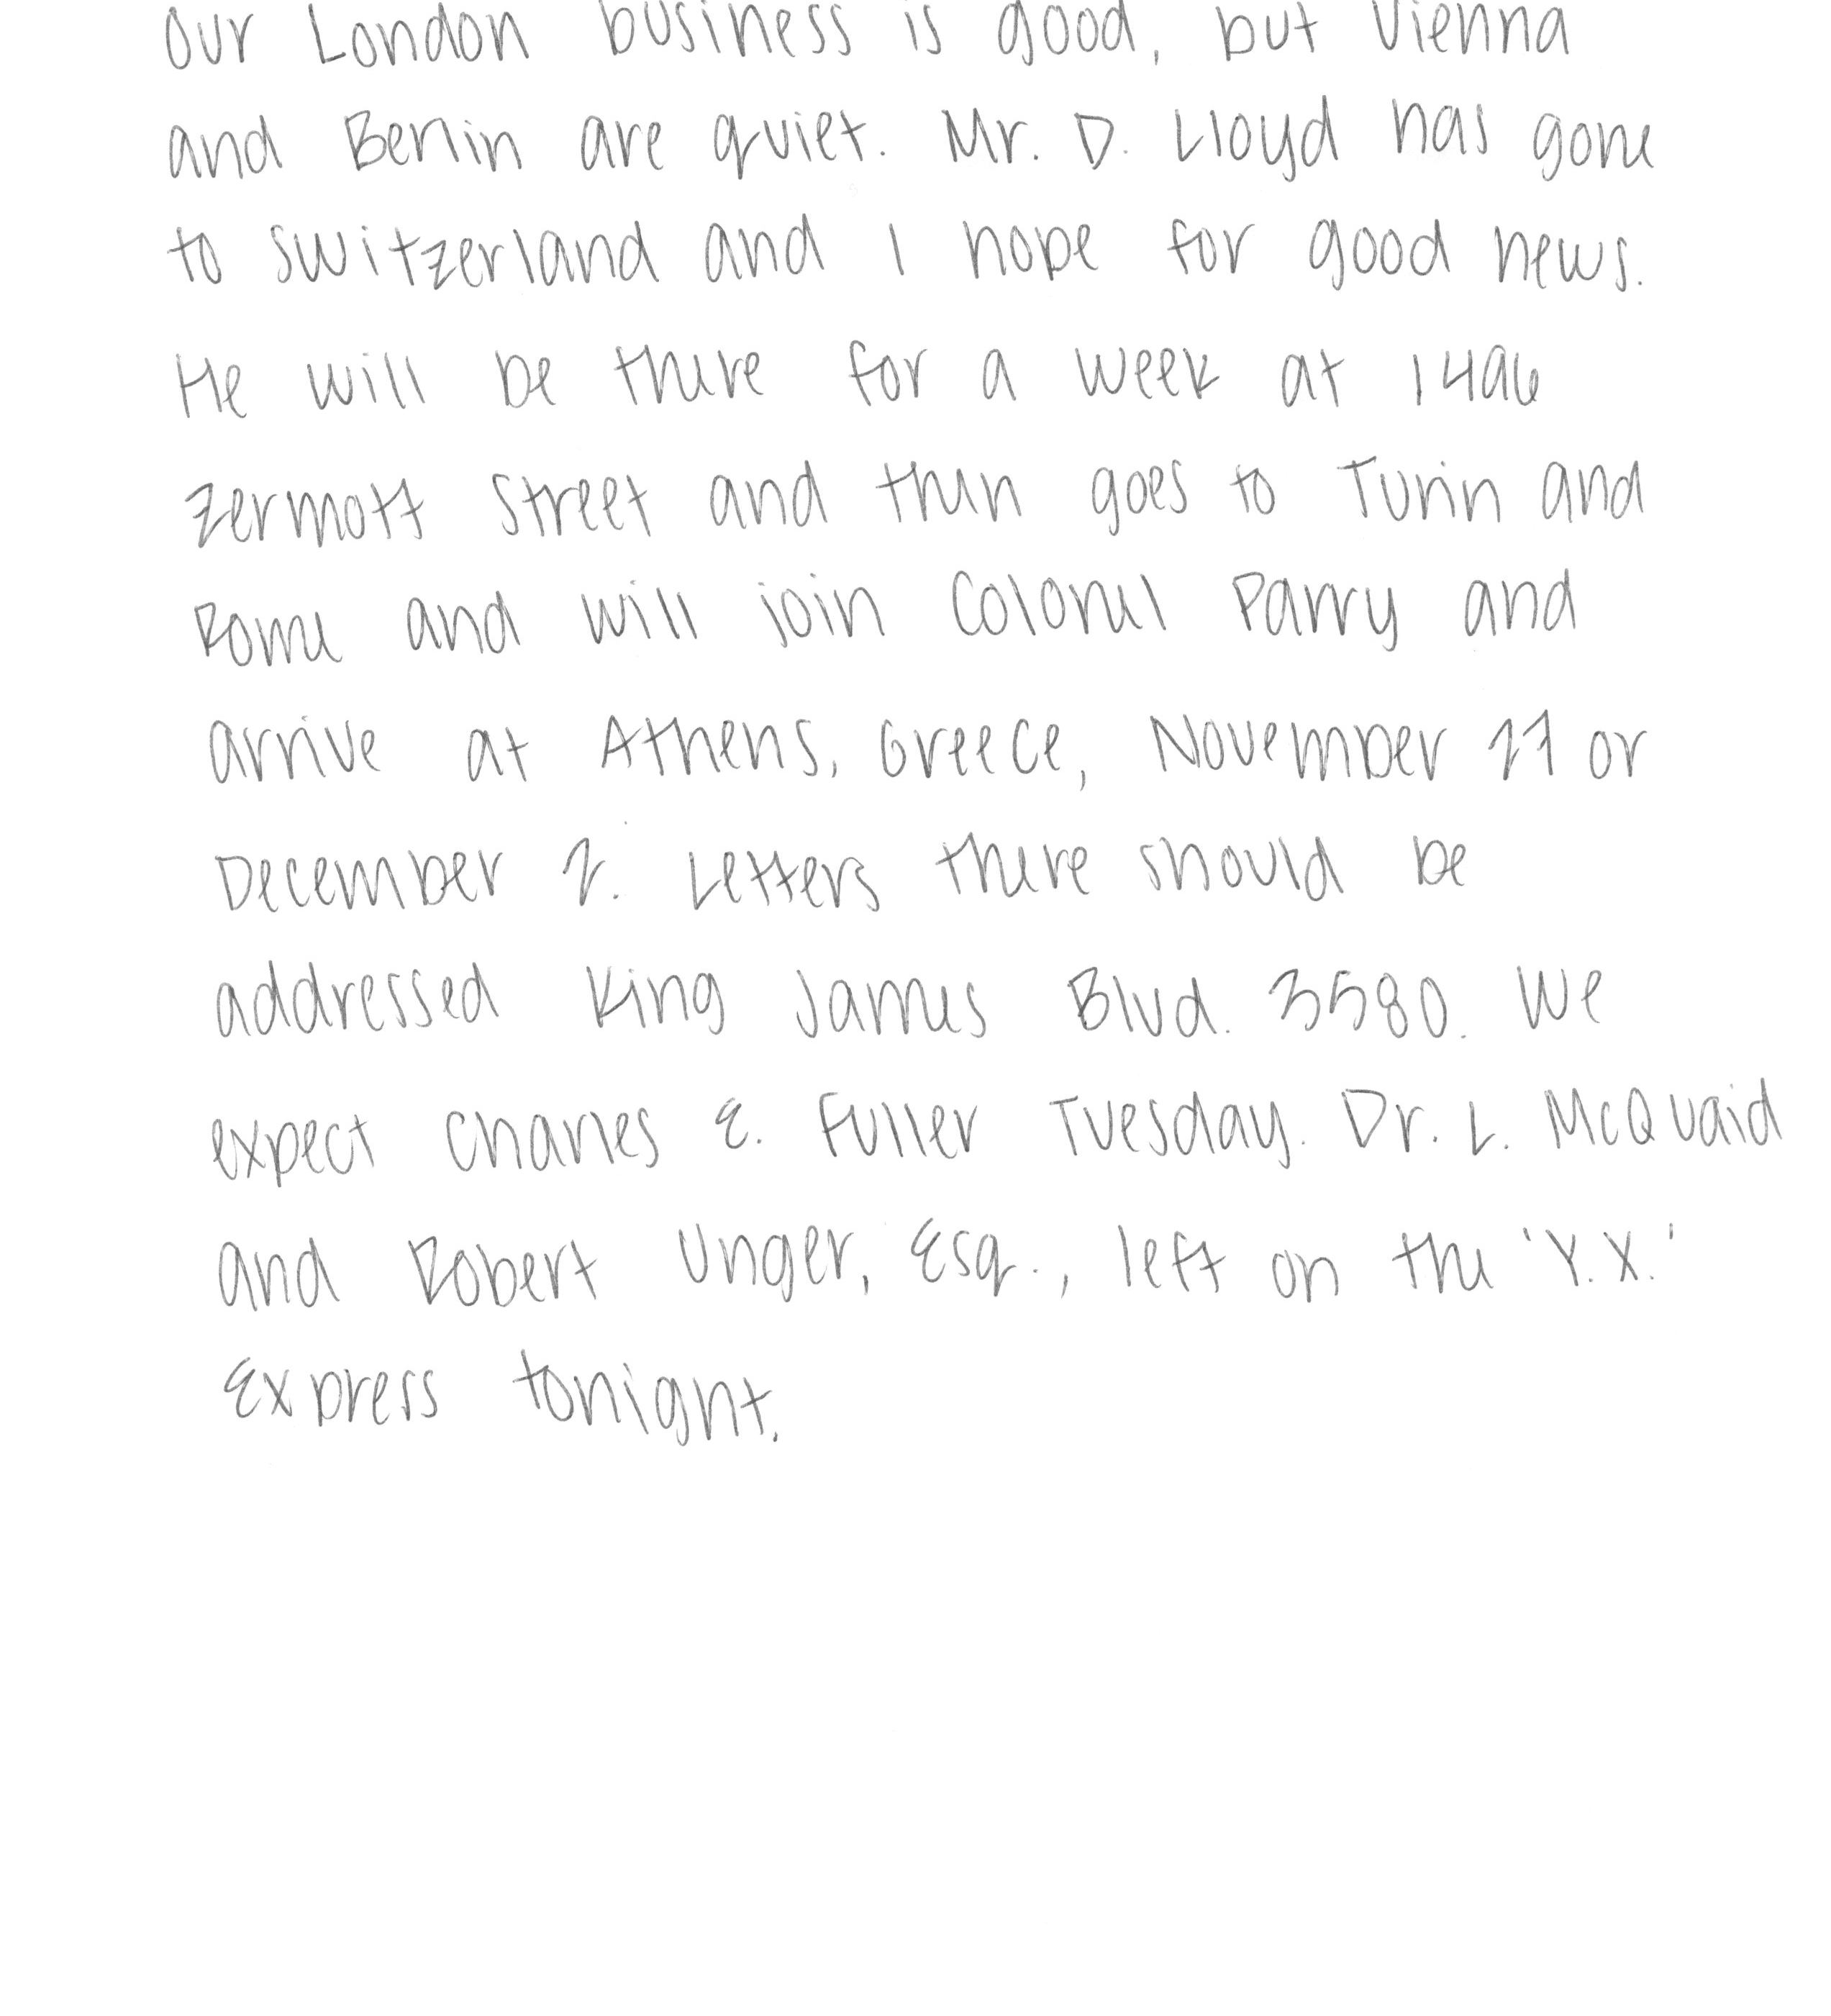 Our London business is good, but Vienna
and Berlin are quiet. Mr. D. Lloyd has gone
to Switzerland and I hope for good news.
He will be there for a week at 1496
Zermott Street and then goes to Turin and
Rome and will join Colonel Parry and
arrive at Athens, Greece, November 27 or
December 2. Letters there should be
addressed King James Blvd. 3580. We
expect Charles E. Fuller Tuesday. Dr. L. McQuaid
and Robert Unger, Esq., left on the 'Y.X.'
Express tonight.